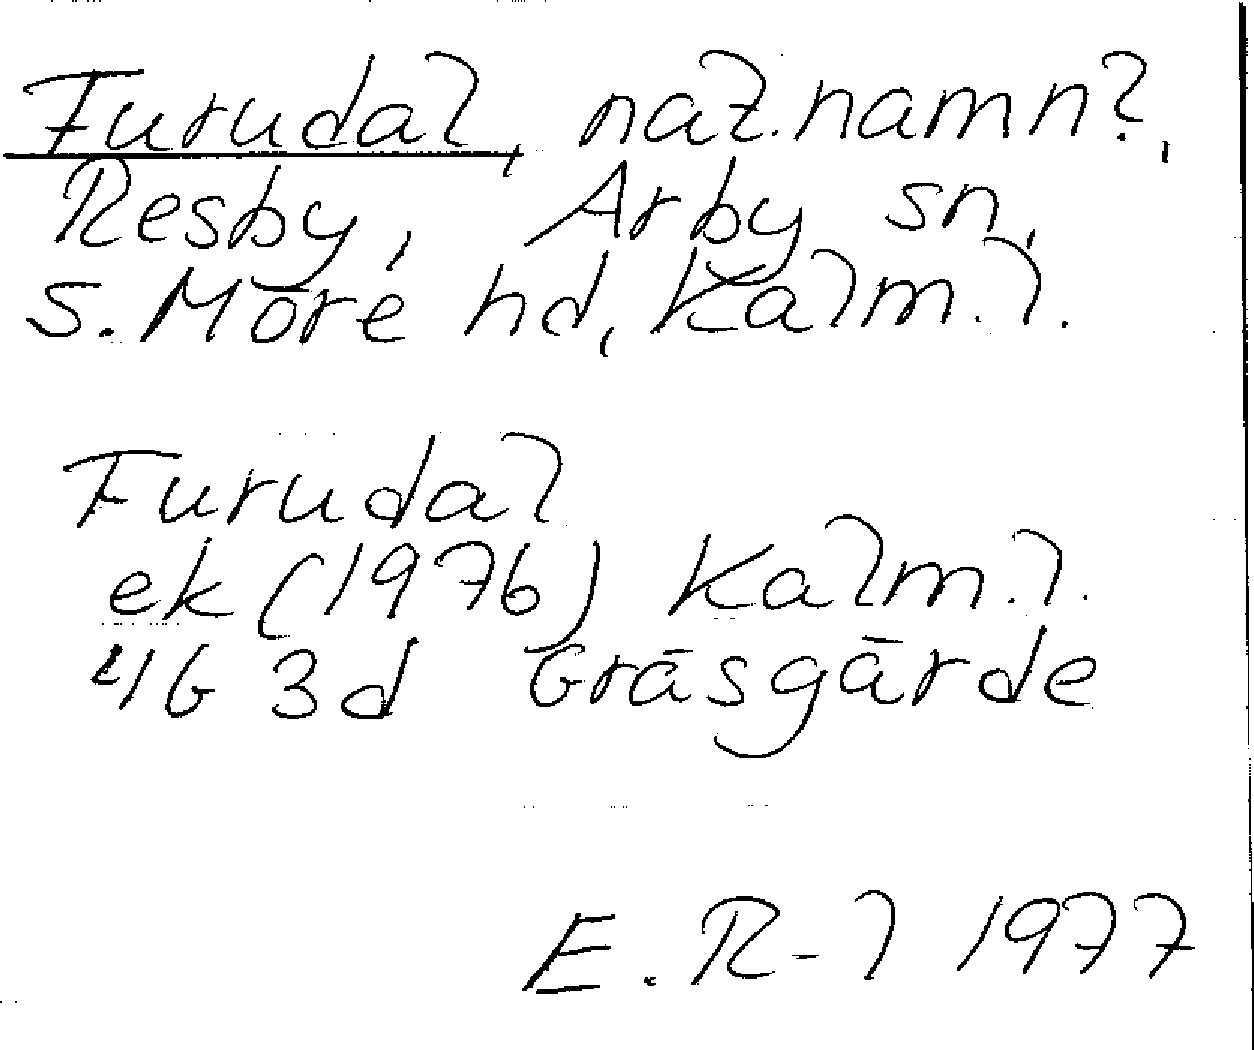 Furudal, nat.namn?,
Resby, Arby sn,
S. Möre hd, Kalm. l.
Furudal
ek (1976) Kalm. l.
4G 3d Gräsgårde
E. R-l 1977